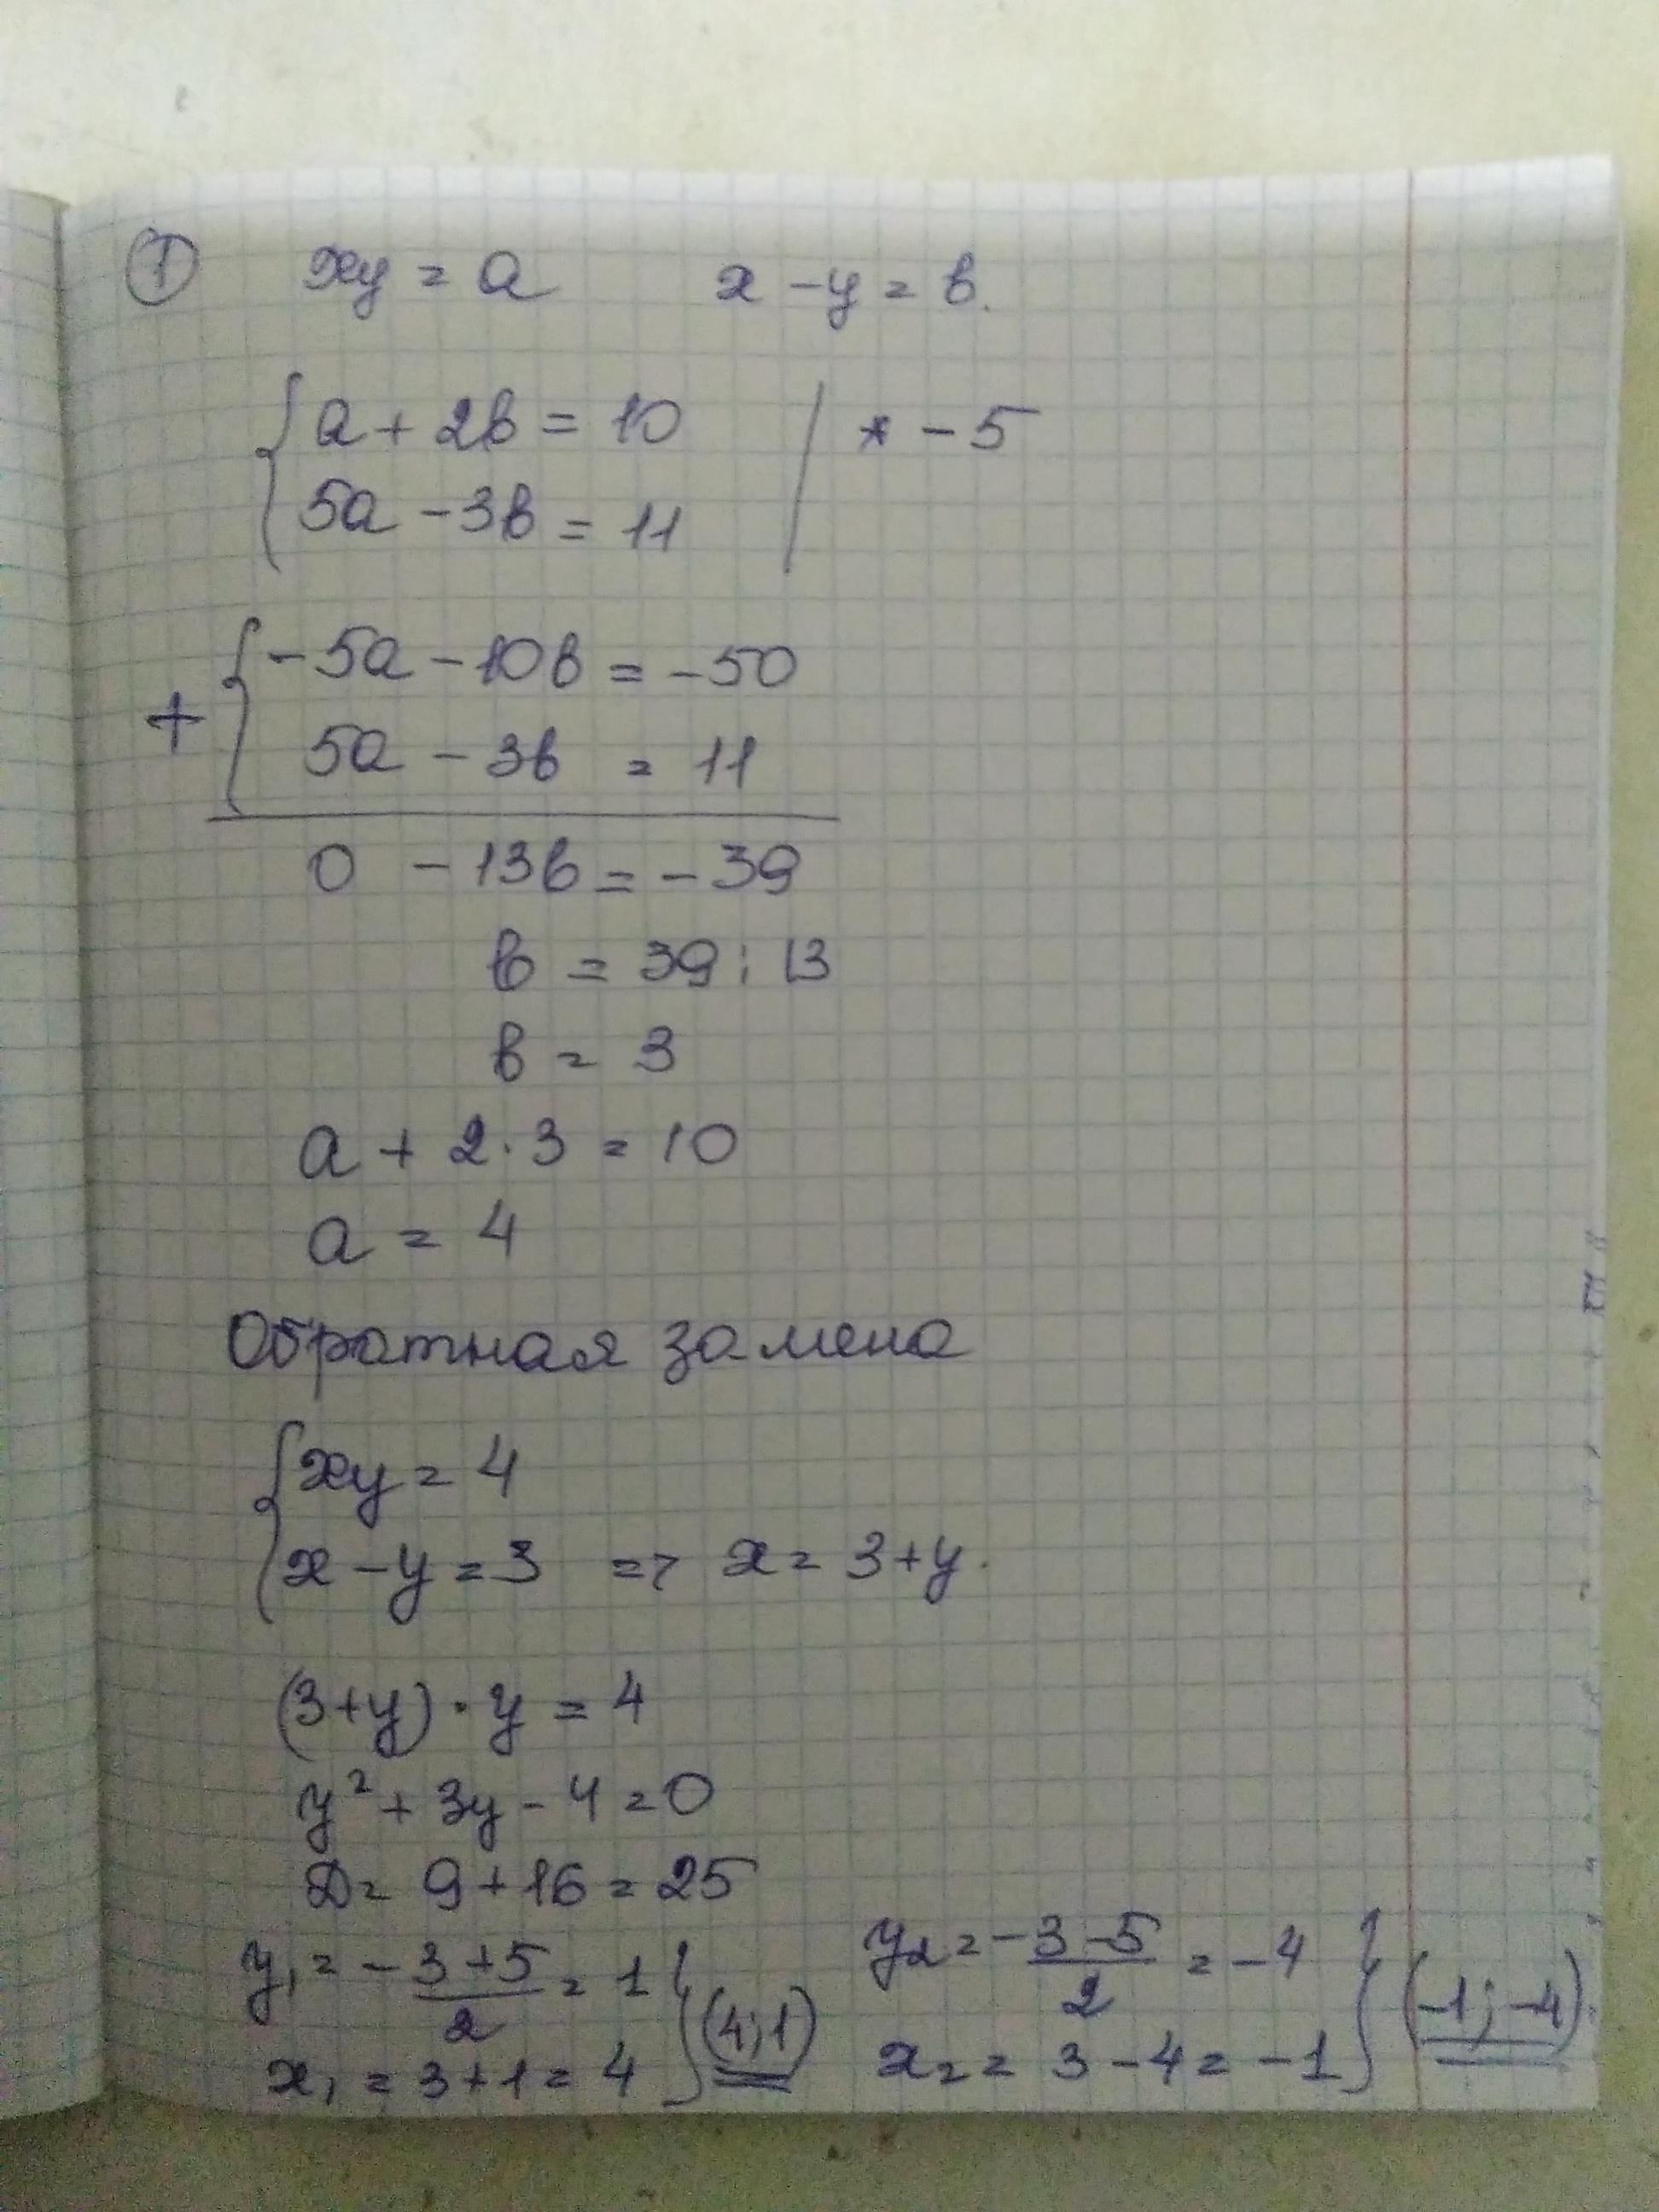 ① xy = a x - y = в.
{ a + 2в = 10 | * - 5
5a - 3в = 11
+ { -5a - 10в = -50
5a - 3в = 11
0 - 13в = - 39
в = 39 : 13
в = 3
a + 2 · 3 = 10
a = 4
Обратная замена
{ xy = 4
x - y = 3 => x = 3 + y.
(3 + y) · y = 4
y² + 3y - 4 = 0
D = 9 + 16 = 25
y₁ = -3+5/2 = 1 } (4; 1) y₂ = -3-5/2 = -4 } (-1; -4).
x₁ = 3 + 1 = 4 x₂ = 3 - 4 = -1